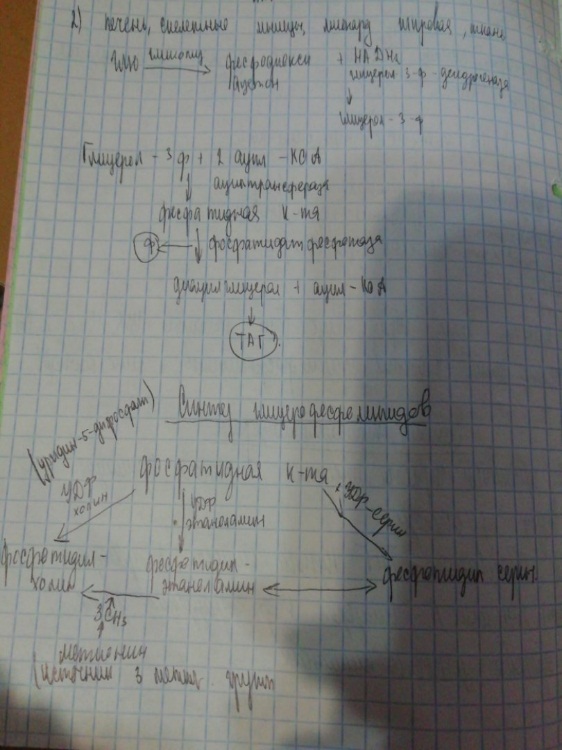 2) печень, скелетные мышцы, миокард, жировая ткань
гликолиз
фосфодиокси
ацетон
+ НАДН₂
глицерол-3-ф-дегидрогеназа
глицерол-3-ф
Глицерол-3ф + 2 ацил-КоА
ацилтрансфераза
фосфатидная к-та
ф
фосфатидатфосфатаза
диацилглицерол + ацил-КоА
ТАГ
(уридин-5-дифосфат)
Синтез глицерофосфолипидов
фосфатидная к-та
УДФ
холин
УДФ
этаноламин
УДФ-серин
фосфатидил-
холин
фосфатидил-
этаноламин
фосфатидил серин
3CH₃
метионин
(источник 3 метил. групп